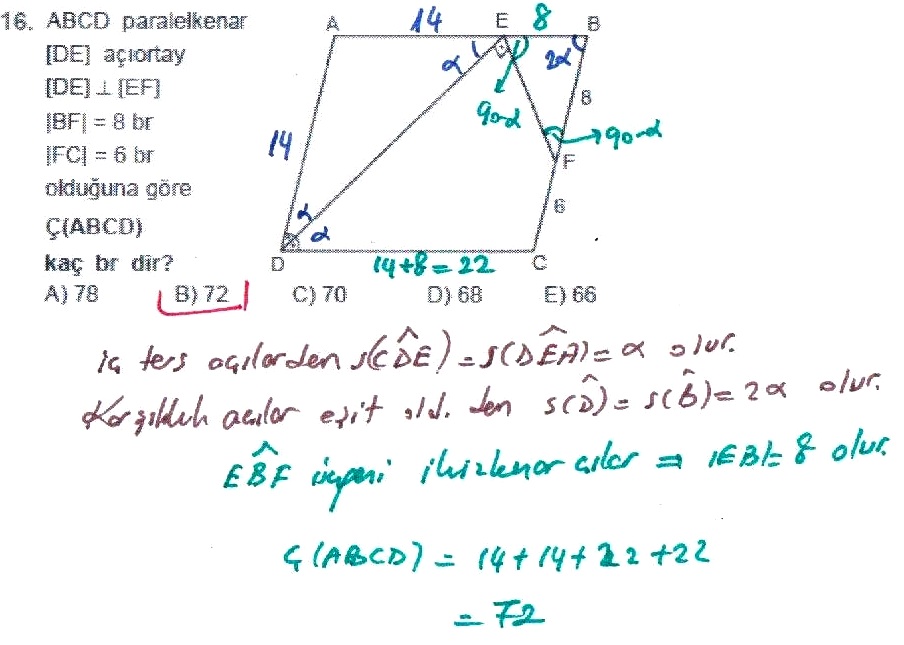 16. ABCD paralelkenar
[DE] açıortay
[DE] ⊥ [EF]
|BF| = 8 br
|FC| = 6 br
olduğuna göre
Ç(ABCD)
kaç br dir?
A 14 E 8 B
α 2α
8
90-α
90-α
14
F
6
α
α
D 14+8=22 C
A) 78 B) 72 C) 70 D) 68 E) 66
iç ters açılardan s(CDE) = s(DEA) = α olur.
Karşılıklı açılar eşit old. den s(D) = s(B) = 2α olur.
EBF üçgeni ikizkenar ⇒ |EB| = 8 olur.
Ç(ABCD) = 14+14+22+22
= 72